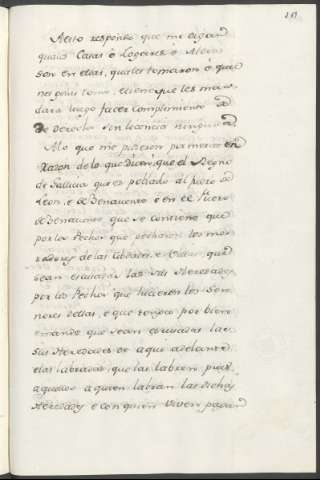 A esto respondo que me digan
quales Casas ó Logares ó Aldeas
son en ellas, quales tomaron ó que
ne gelas tomó, é Yo que les man
dará luego facer complimiento
de derecho sin licencia ninguna
A lo que me pidieron por merced en
Razon de lo que dicen, que el Regno
de Gallicia que es poblado al fuero de
Leon, e de Benavente e en el Fuero
de Benavente que se contiene que
por los Pechos que pecharon los mo
radores de las Cibdades, e Villas que
sean escusadas las sus Heredades
por los Pechos que hicieron los Sen
nores dellas, e que tengo por bien
e mande que sean escusadas las
sus Heredades de aqui adelante
e las labrades, que las labren, pues
aquellos a quien labran las dichas
Heredades e con quien viven pagan